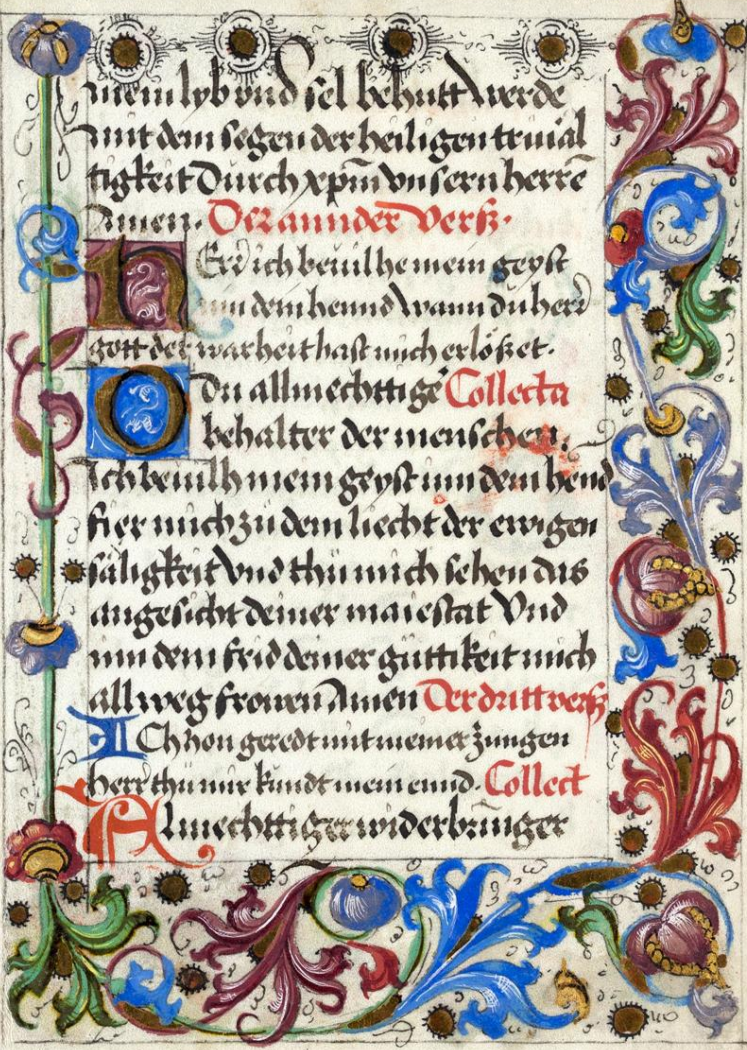 mein lyb vnd sel behutt werde
mit dem segen der heiligen triuial
tigkeit Durch xpm̄ vnsern herrē
Amen. Der annder Verß.
HErr ich beuilhe mein geyst
inn dein hennd Wann du herr
gott der warheit hast mich erlößet.
O Du allmechttige Collecta
behalter der menschen.
Ich beuilh mein geyst inn dein hend
fier mich zu dem liecht der ewigen
säligkeit Vnd thu mich sehen das
angesicht deiner maiestat Vnd
inn dem frid deiner güttikeit mich
allweg frowen Amen Der dritt verß
ICh hon geredt mit meiner zungen
herr thu mir kundt mein ennd. Collect
Almechttiger widerbringer